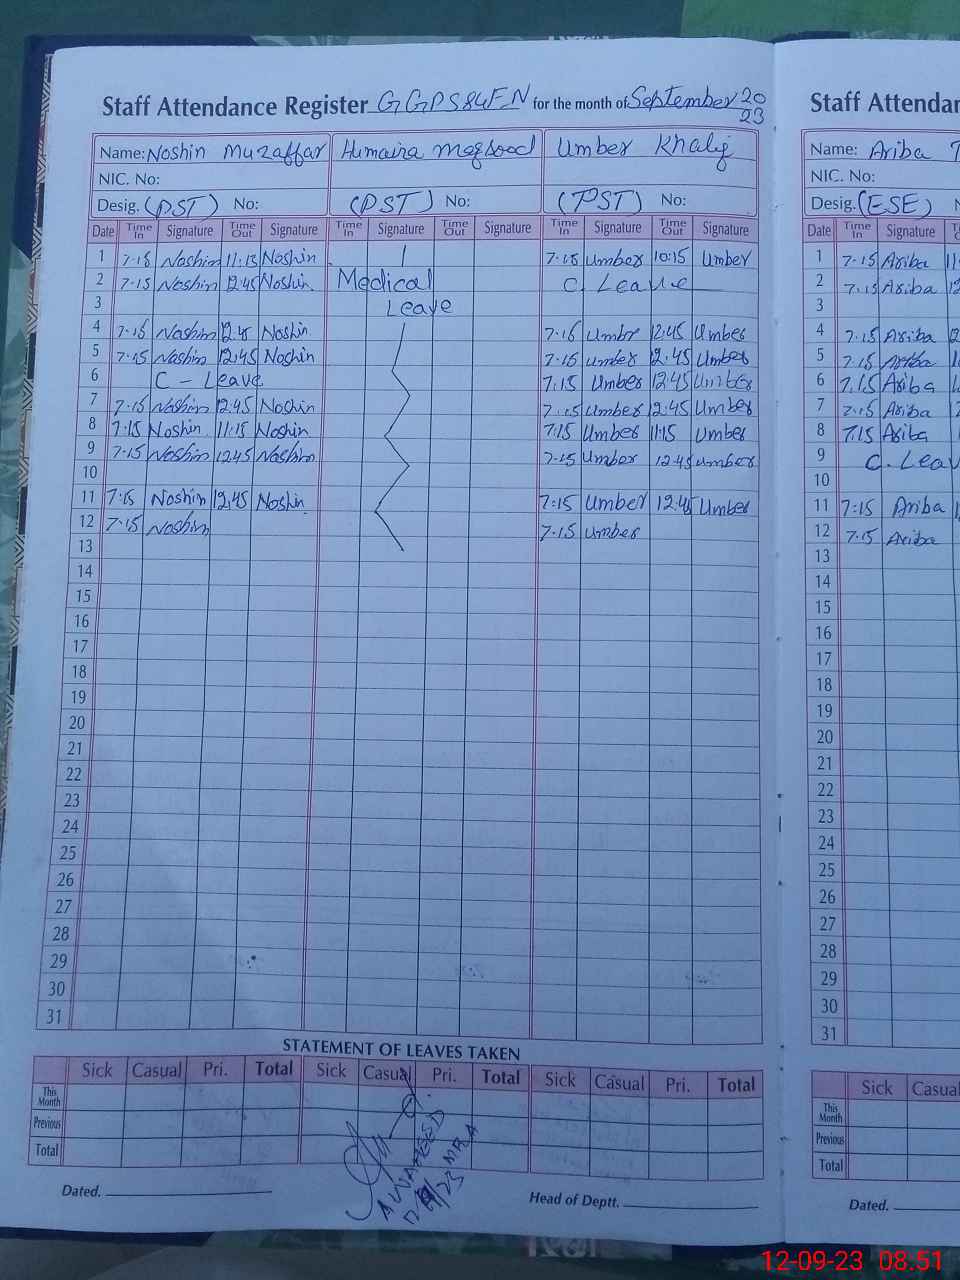 Staff Attendance Register GGPS84FN for the month of September 20 23
Staff Attendan
Name: Noshin Muzaffar Humaira Maqsood Umber Khaliq
Name: Ariba
NIC. No:
NIC. No:
Desig. (PST) No: (PST) No: (PST) No:
Desig. (ESE)
Date Time In Signature Time Out Signature Time In Signature Time Out Signature Time In Signature Time Out Signature
Date Time In Signature
1 7-15 Noshin 11:15 Noshin 7-15 Umber 10:15 Umber
1 7-15 Ariba
2 7-15 Noshin 12:45 Noshin Medical C. Leave
2 7-15 Ariba
3 Leave
3
4 7-15 Noshin Noshin 7-15 Umber 12:45 Umber
4 7-15 Ariba
5 7-15 Noshin 12:45 Noshin 7-15 Umber 12:45 Umber
5 7-15 Ariba
6 C - Leave 7:15 Umber 12:45 Umber
6 7:15 Ariba
7 7-15 Noshin 12:45 Noshin 7-15 Umber 12:45 Umber
7 7-15 Ariba
8 7:15 Noshin 11:15 Noshin 7:15 Umber 11:15 Umber
8 7:15 Ariba
9 7-15 Noshin 12:45 Noshin 7-15 Umber 12:45 Umber
9 C. Leav
10
10
11 7:15 Noshin 12:45 Noshin 7:15 Umber 12:45 Umber
11 7:15 Ariba
12 7-15 Noshin 7-15 Umber
12 7-15 Ariba
13
13
14
14
15
15
16
16
17
17
18
18
19
19
20
20
21
21
22
22
23
23
24
24
25
25
26
26
27
27
28
28
29
29
30
30
31
31
STATEMENT OF LEAVES TAKEN
Sick Casual Pri. Total Sick Casual Pri. Total Sick Casual Pri. Total
Sick Casual
This Month
This Month
Previous
Previous
Total
Total
Dated. Head of Deptt.
Dated.
12-09-23 08.51